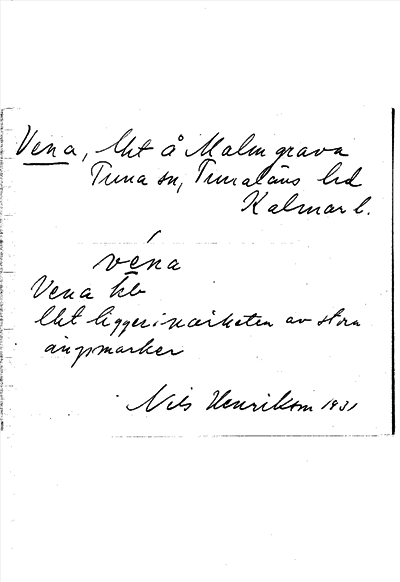 Vena, lht å Malmgrava
Tuna sn, Tunaläns hd
Kalmar l.
véna
Vena hb
lht ligger i närheten av stora
ängsmarker
Nils Henrikson 1931